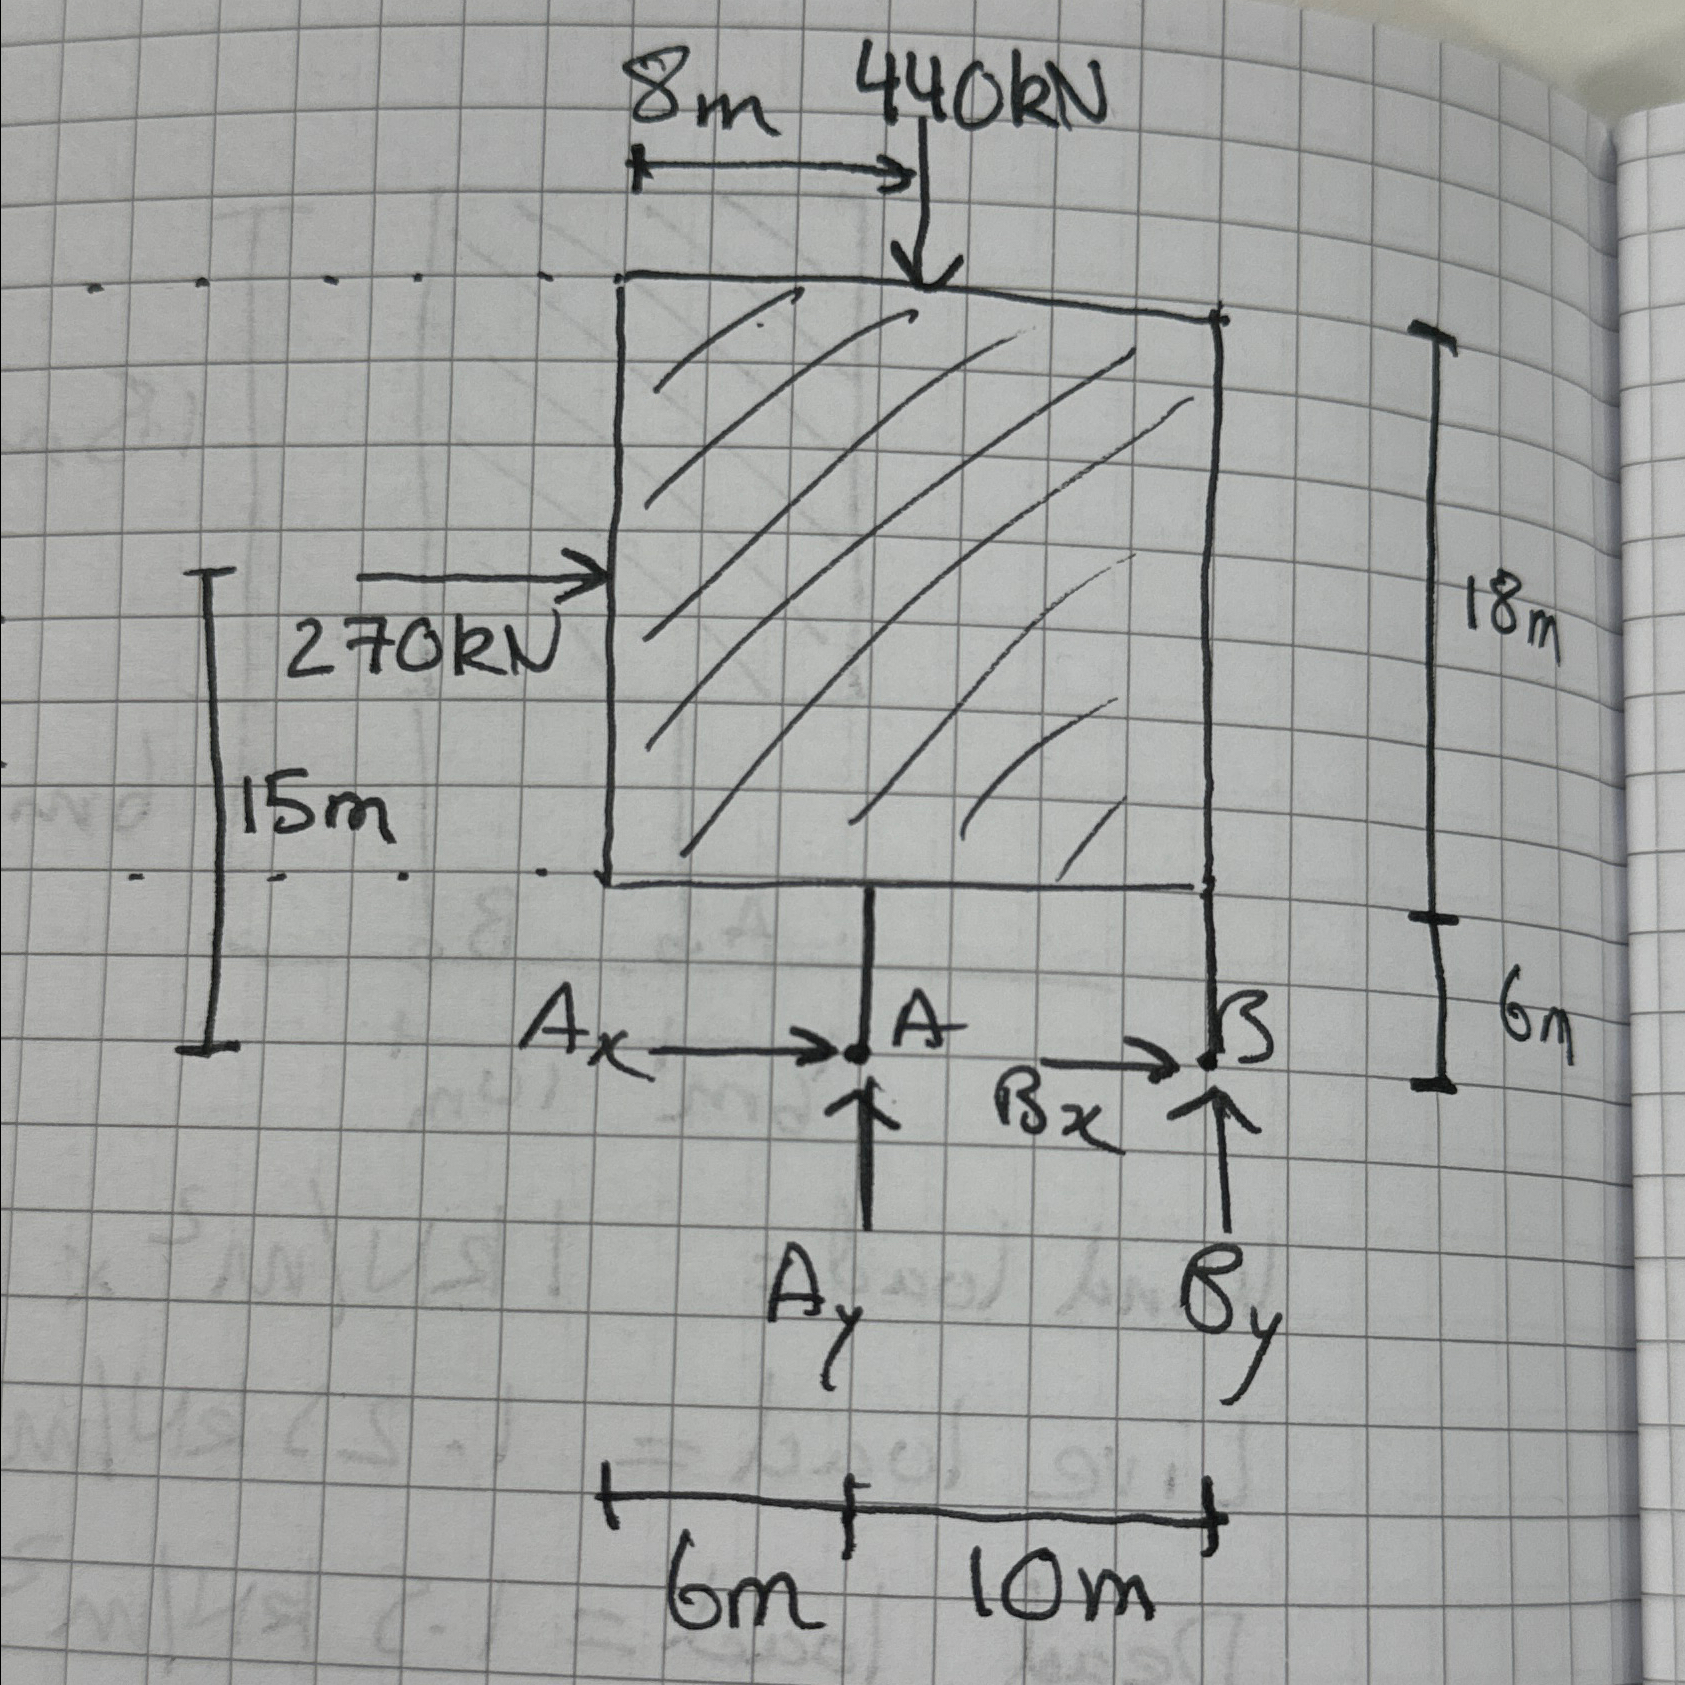 8m 440kN
270kN
18m
15m
Ax A
Bx B
6m
Ay By
6m 10m